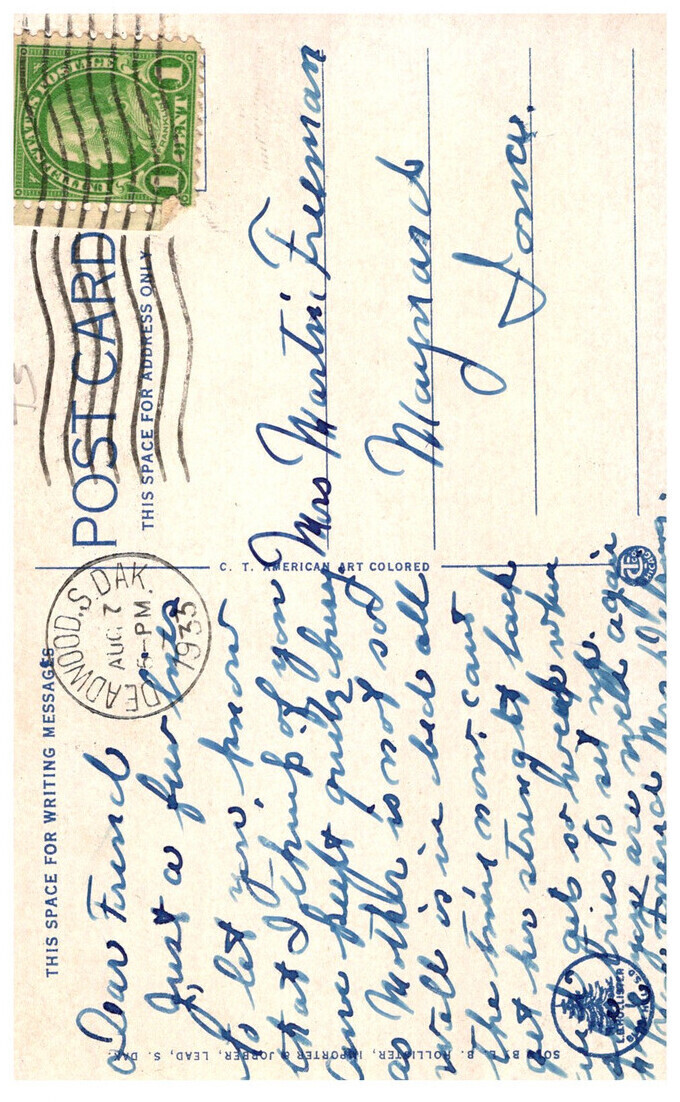 THIS SPACE FOR WRITING MESSAGES
Dear Friend
Just a few lines
to let you know
that I think of you
am kept quite busy
as Mother is not so
well is in bed all
the time now. cant
get her strength back
gets so weak when
she tries to set up.
hope you are well again
Your friend Mrs
SOLD BY L. B. HOLLISTER, IMPORTER & JOBBER, LEAD, S. DAK.
L.B. HOLLISTER
DEADWOOD, S. DAK.
AUG 7
6-PM
1935
C. T. AMERICAN ART COLORED
POST CARD
THIS SPACE FOR ADDRESS ONLY
UNITED STATES POSTAGE
FRANKLIN
1 CENT 1
Mrs Martin Freeman
Maynard
Iowa.